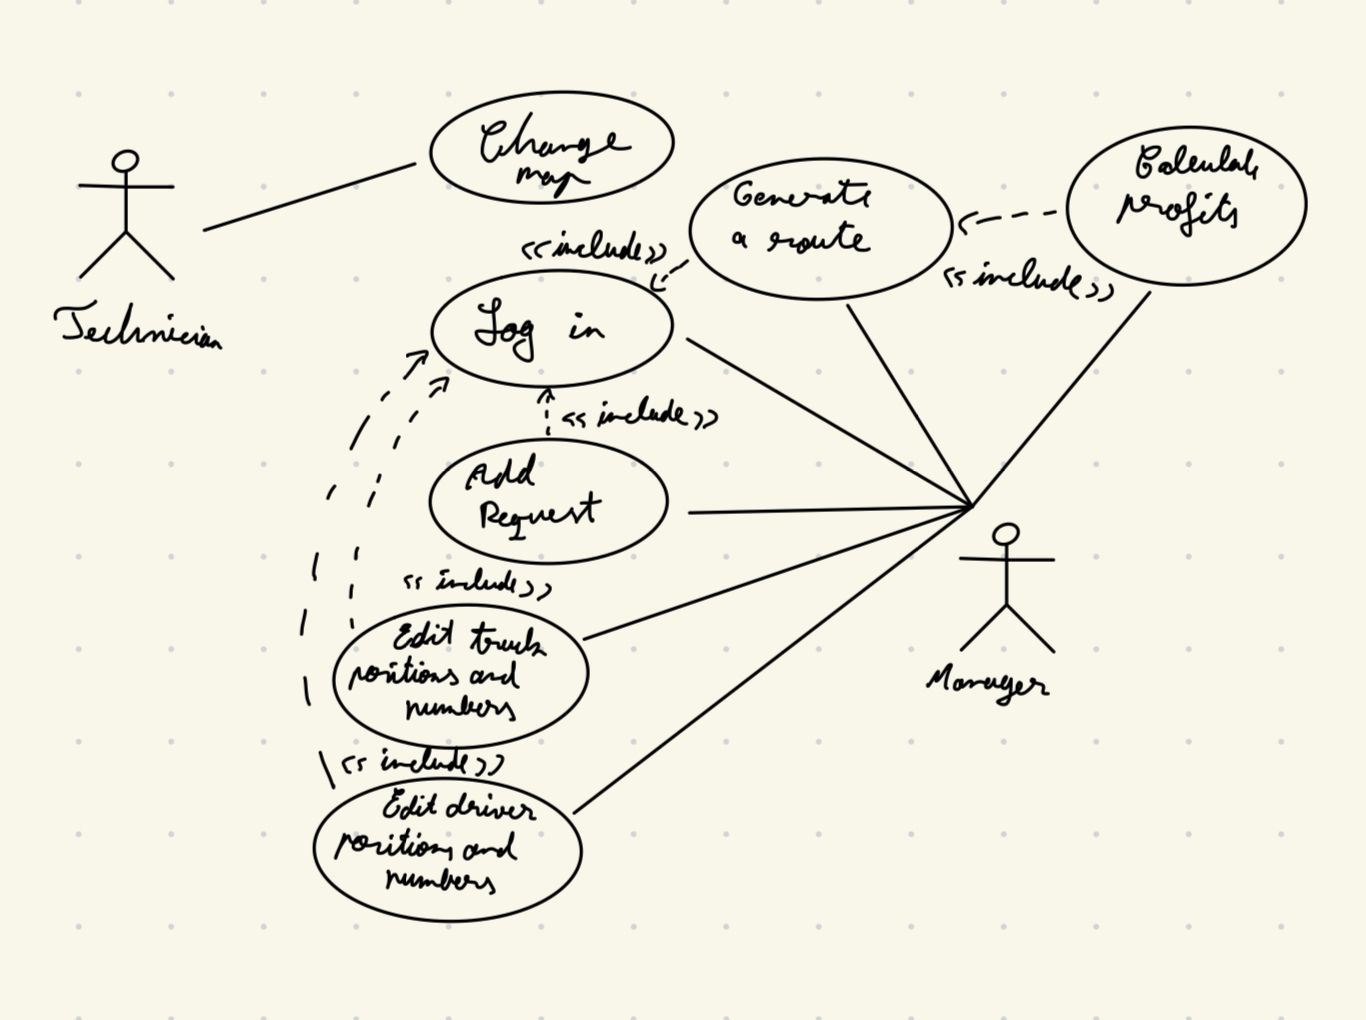 Change
map
Technician
Generate
a route
Calculate
profits
<<include>>
<<include>>
Log in
<<include>>
Add
Request
<<include>>
Edit truck
positions and
numbers
Manager
<<include>>
Edit driver
positions and
numbers